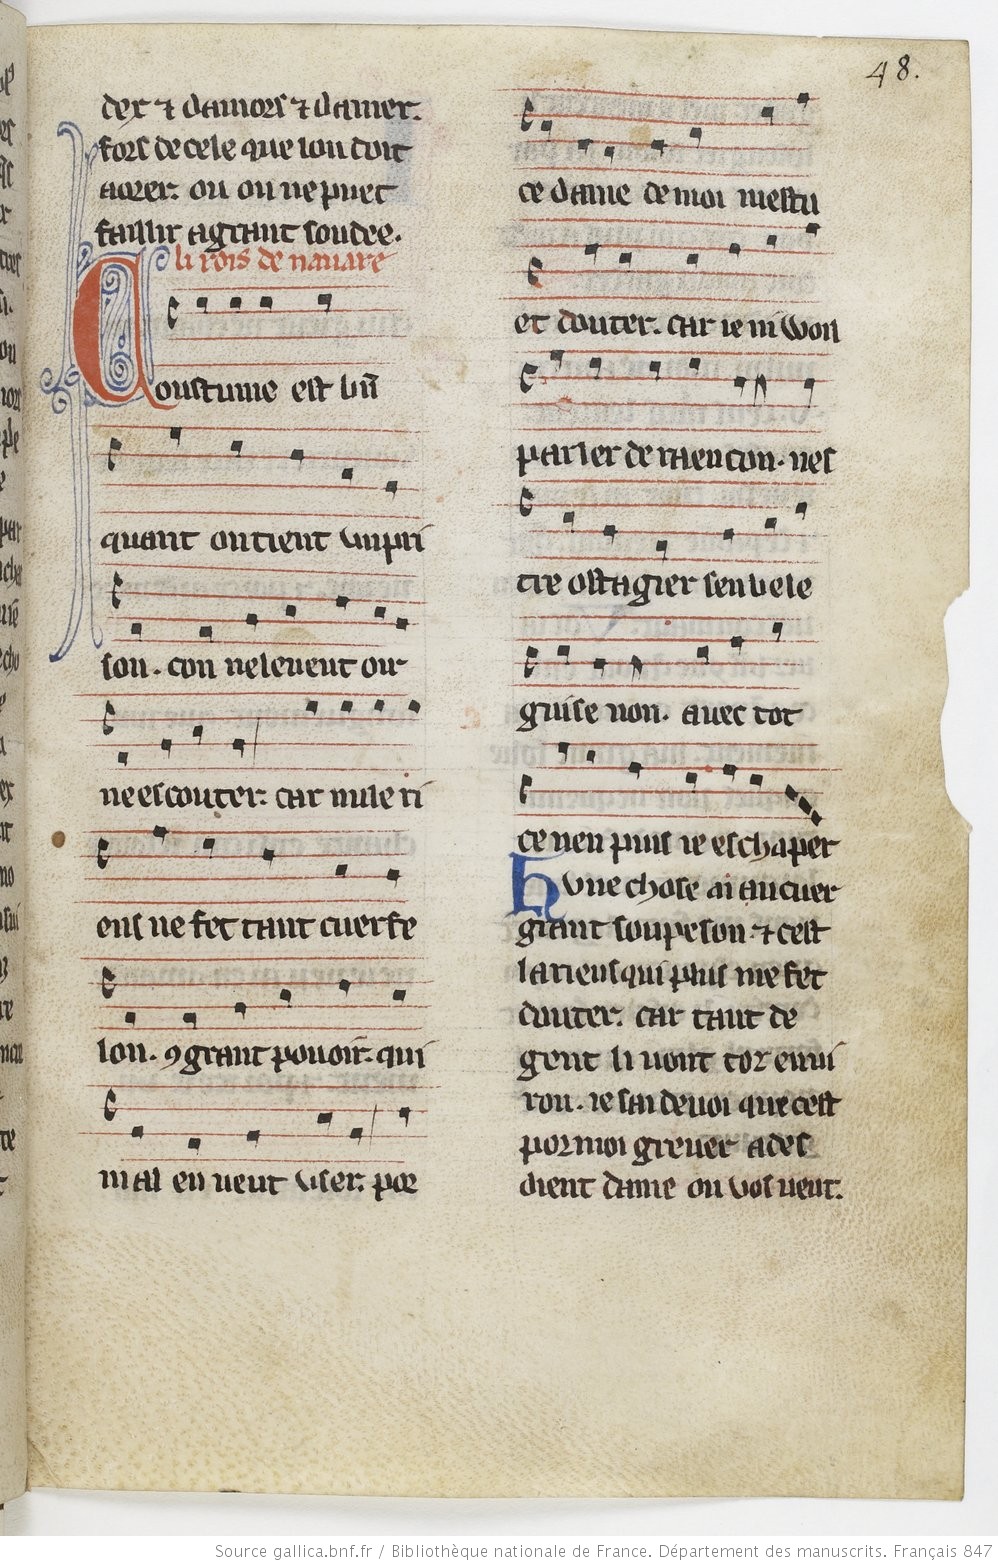 48.
dex ⁊ damors ⁊ damer.
fors de cele que lon doit
aorer. ou on ne puet
faillir a grant soudee.
li rois de navare
Coustume est bn̄
quant on tient vn pri
son. con ne le veut oir
ne escouter. car nule ri
ens ne fet tant cuer fe
lon. ꝯ grant pouoir. qui
mal en ueut vser. por
ce dame de moi mestu
et douter. car ie ni won
parler de raencon. nes
tre ostagier sen bele
guise non. auec tot
ce nen puis ie eschaper
Vne chose ai au cuer
grant soupeson. ⁊ cest
la riens qui plus me fet
douter. car tant de
gent li uont tor enui
ron. ie sai de uoi que cest
por moi greuer ades
dient dame on vos ueut.
Source gallica.bnf.fr / Bibliothèque nationale de France. Département des manuscrits. Français 847